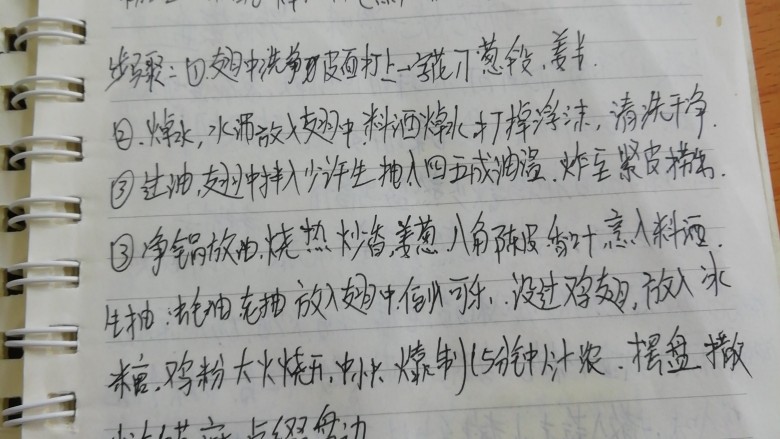 步骤:①翅中洗净,皮面打上一字花刀 葱段、姜片.
②.焯水,水沸放入翅中.料酒焯水.打掉浮沫,清洗干净.
③过油,翅中拌入少许生抽入四五成油温.炸至紧皮捞出.
③净锅放油.烧热炒香,姜葱八角陈皮香叶.烹入料酒.
生抽.蚝油.老抽 放入翅中倒入可乐.没过鸡翅,放入冰
糖、鸡粉大火烧开,中小火.制15分钟汁浓.摆盘撒
点缀盘边